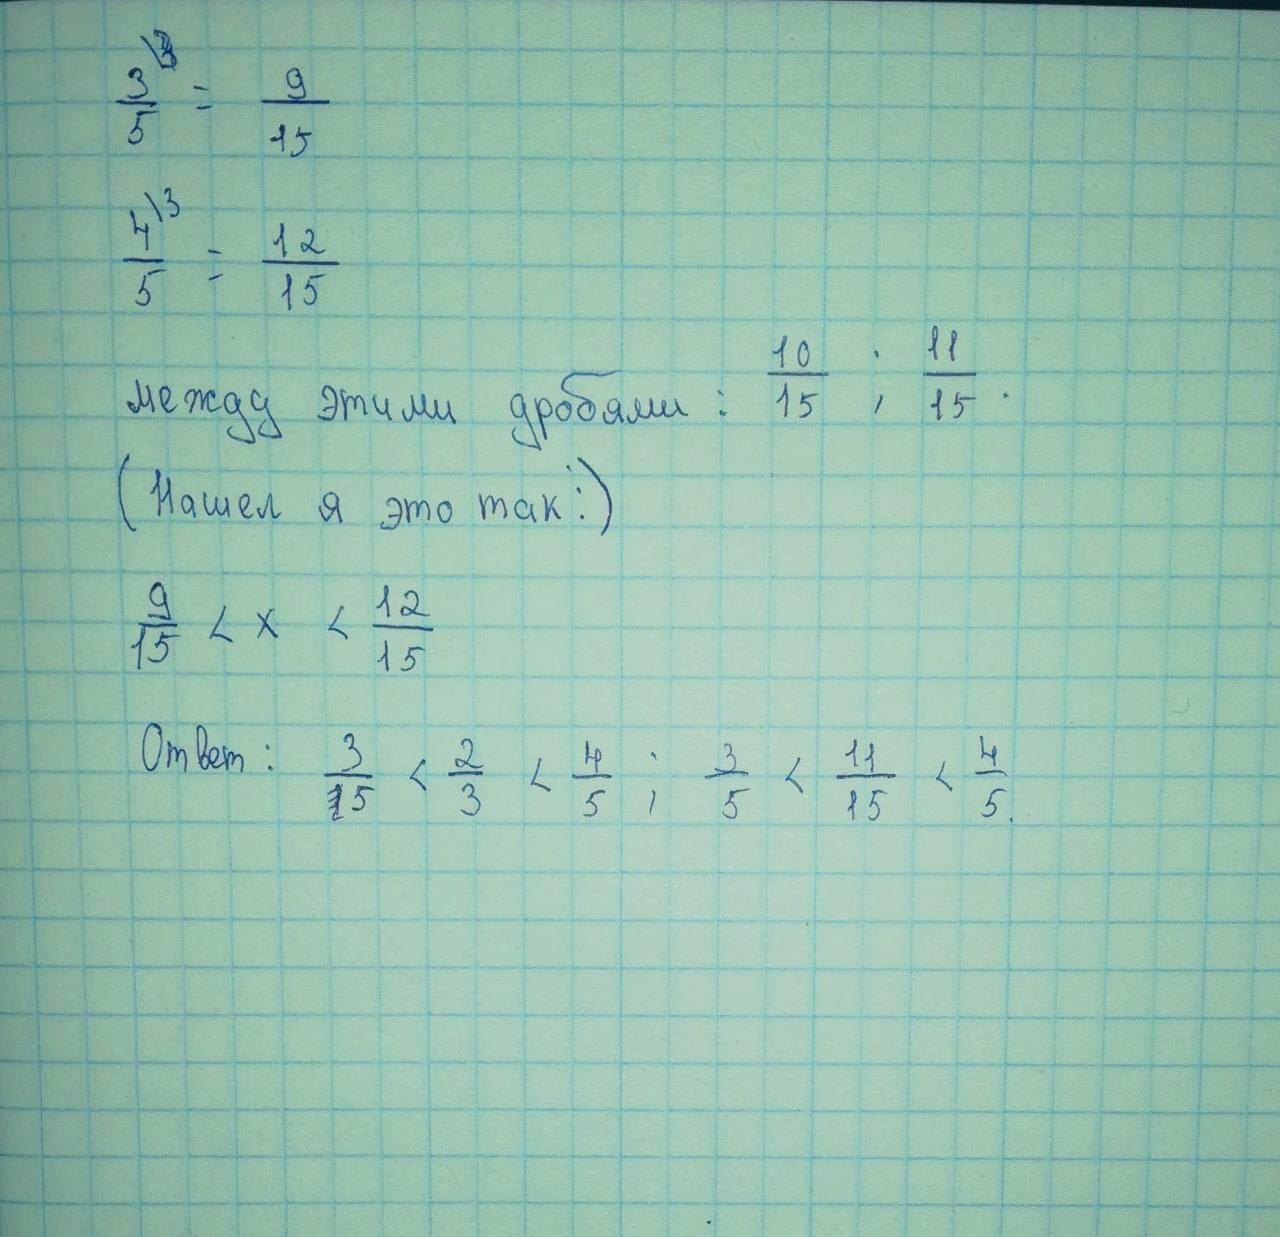 3\3/5 = 9/15
4\3/5 = 12/15
между этими дробями: 10/15 ; 11/15.
(Нашел я это так:)
9/15 < x < 12/15
Ответ: 3/15 < 2/3 < 4/5 ; 3/5 < 11/15 < 4/5.